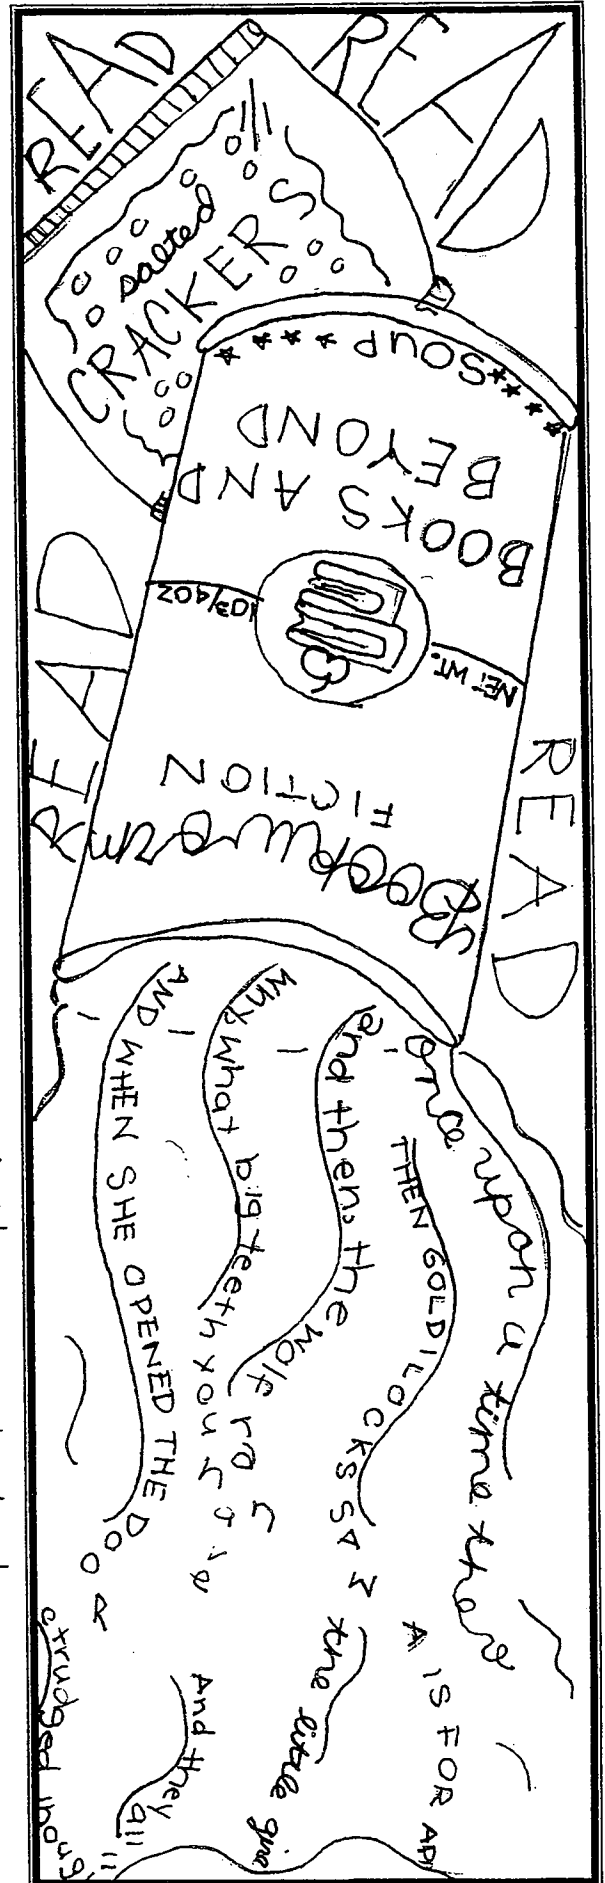 READ
READ
salted
CRACKERS
SOUP
BOOKS AND
BEYOND
NET WT.
10 3/4 OZ
FICTION
Bookworm
READ
READ
once upon a time ther
THEN GOLDILOCKS SAW
A IS FOR AP
and then, the wolf ran
the little gir
Why what big teeth you have
And they all
AND WHEN SHE OPENED THE DOOR
trudged